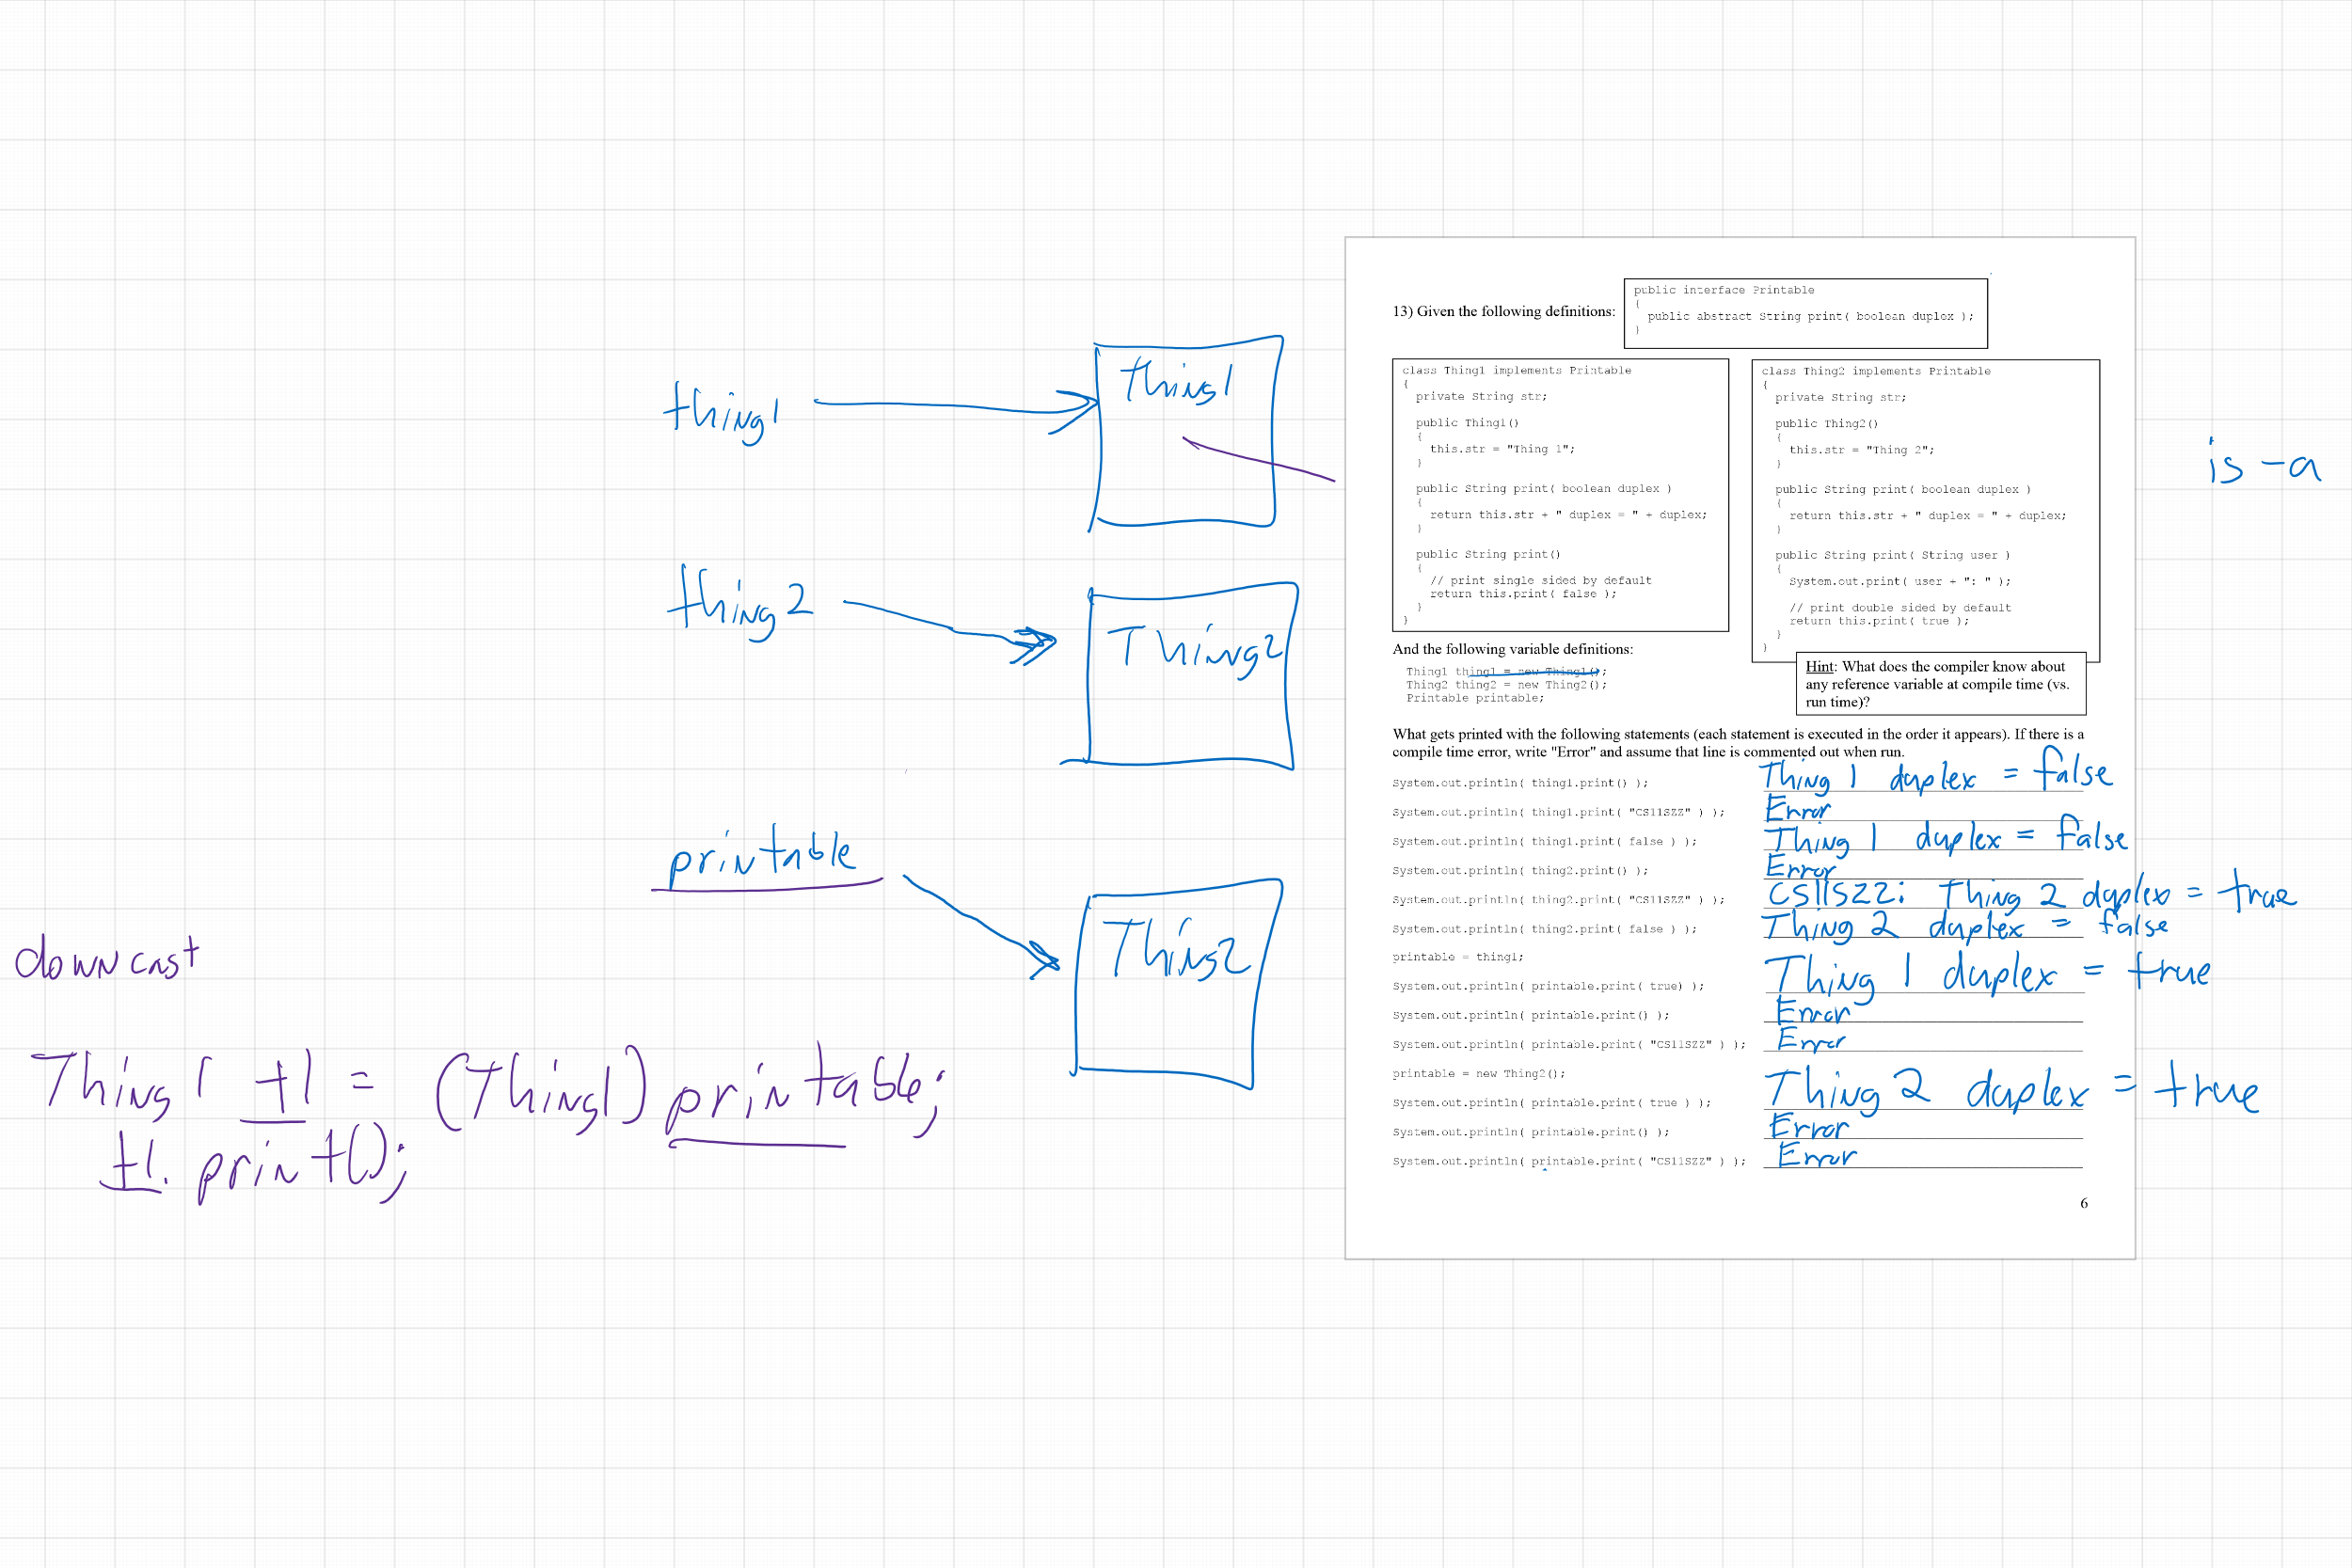 13) Given the following definitions:
public interface Printable
{
public abstract String print( boolean duplex );
}
class Thing1 implements Printable
{
private String str;
public Thing1()
{
this.str = "Thing 1";
}
public String print( boolean duplex )
{
return this.str + " duplex = " + duplex;
}
public String print()
{
// print single sided by default
return this.print( false );
}
}
class Thing2 implements Printable
{
private String str;
public Thing2()
{
this.str = "Thing 2";
}
public String print( boolean duplex )
{
return this.str + " duplex = " + duplex;
}
public String print( String user )
{
System.out.print( user + ": " );
// print double sided by default
return this.print( true );
}
}
And the following variable definitions:
Thing1 thing1 = new Thing1();
Thing2 thing2 = new Thing2();
Printable printable;
Hint: What does the compiler know about
any reference variable at compile time (vs.
run time)?
What gets printed with the following statements (each statement is executed in the order it appears). If there is a
compile time error, write "Error" and assume that line is commented out when run.
System.out.println( thing1.print() ); Thing 1 duplex = false
System.out.println( thing1.print( "CS11SZZ" ) ); Error
System.out.println( thing1.print( false ) ); Thing 1 duplex = false
System.out.println( thing2.print() ); Error
System.out.println( thing2.print( "CS11SZZ" ) ); CS11SZZ: Thing 2 duplex = true
System.out.println( thing2.print( false ) ); Thing 2 duplex = false
printable = thing1;
System.out.println( printable.print( true) ); Thing 1 duplex = true
System.out.println( printable.print() ); Error
System.out.println( printable.print( "CS11SZZ" ) ); Error
printable = new Thing2();
System.out.println( printable.print( true ) ); Thing 2 duplex = true
System.out.println( printable.print() ); Error
System.out.println( printable.print( "CS11SZZ" ) ); Error
6
is-a
thing1
Thing1
thing2
Thing2
printable
Thing2
downcast
Thing1 t1 = (Thing1) printable;
t1.print();